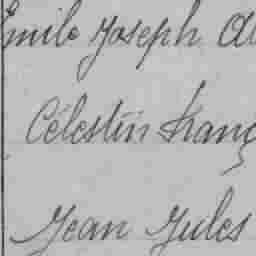 Emile Joseph Al
Célestin Franç
Jean Jules